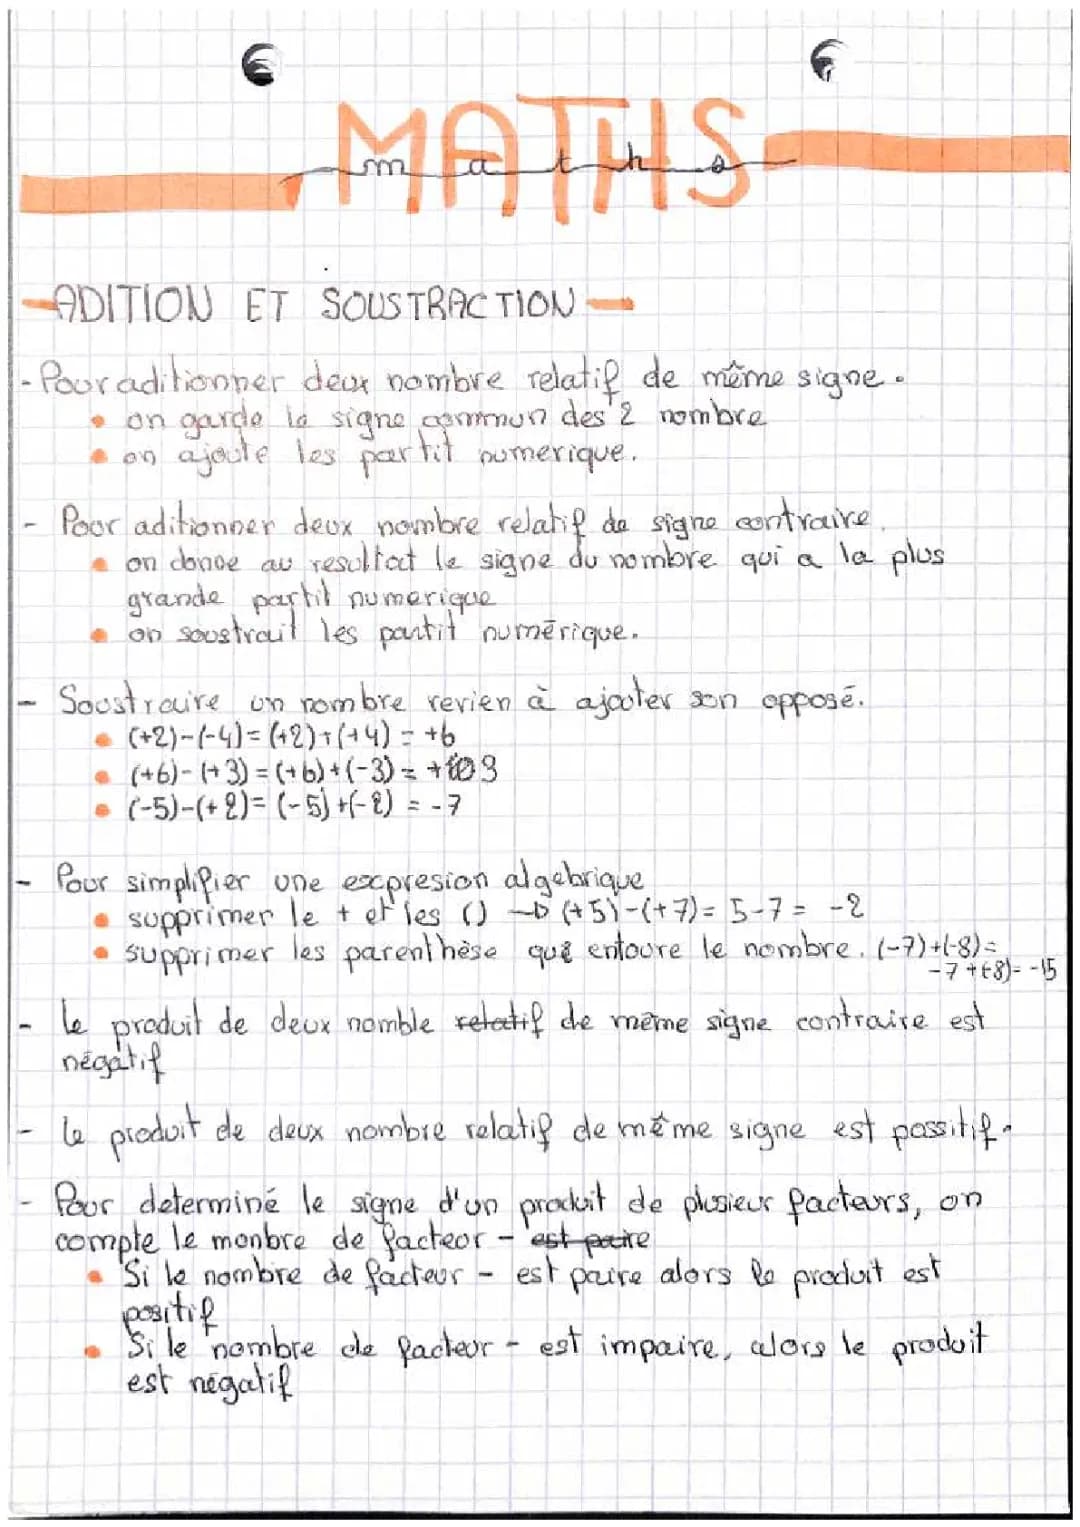 MATHS
maths
ADITION ET SOUSTRACTION
- Pour aditionner deux nombre relatif de même signe.
• on garde le signe commun des 2 nombre
• on ajoute les partit numerique.
- Pour aditionner deux nombre relatif de signe contraire.
• on donne au resultat le signe du nombre qui a la plus
grande partit numerique
• on soustrait les partit numérique.
- Soustraire un nombre revien à ajouter son opposé.
• (+2)-(-4)= (+2)+(+4) = +6
• (+6)-(+3)=(+6)+(-3)= +3
• (-5)-(+2)= (-5)+(-2) = -7
- Pour simplifier une expresion algebrique
• supprimer le + et les () → (+5)-(+7)= 5-7= -2
• supprimer les parenthèse que entoure le nombre. (-7)+(-8)=
-7+(-8)= -15
- le produit de deux nomble relatif de même signe contraire est
négatif
- le produit de deux nombre relatif de même signe est possitif.
- Pour determiné le signe d'un produit de plusieur facteurs, on
compte le monbre de facteor - est paire
• Si le nombre de facteur - est paire alors le produit est
positif
• Si le nombre de facteor - est impaire, alors le produit
est négatif